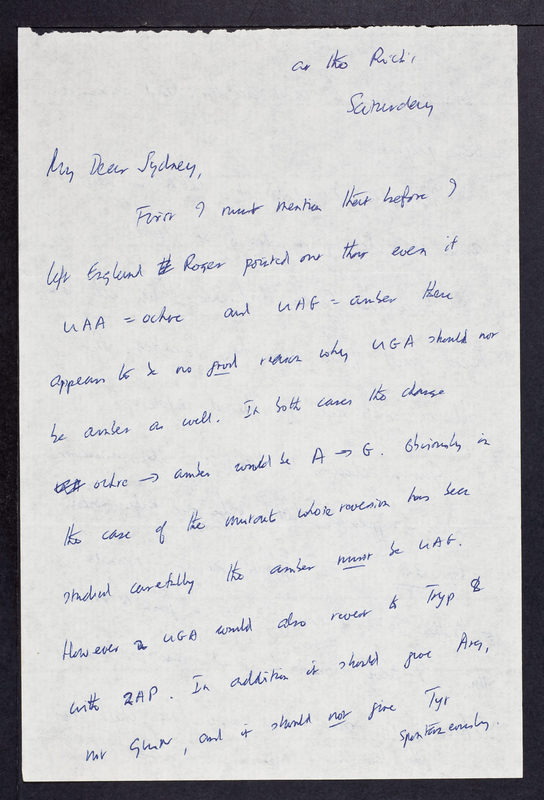 at the Rich,
Saturday
My Dear Sydney,
First I must mention that before I
left England Roger pointed out that even if
UAA = ochre and UAG = amber there
appears to be no good reason why UGA should not
be amber as well. In both cases the change
ochre → amber would be A → G. Obviously in
the case of the mutant whose reversion has been
studied carefully the amber must be UAG.
However a UGA would also revert to Tryp &
with 2AP. In addition it should give Arg,
not GluN, and it should not give Tyr
spontaneously.